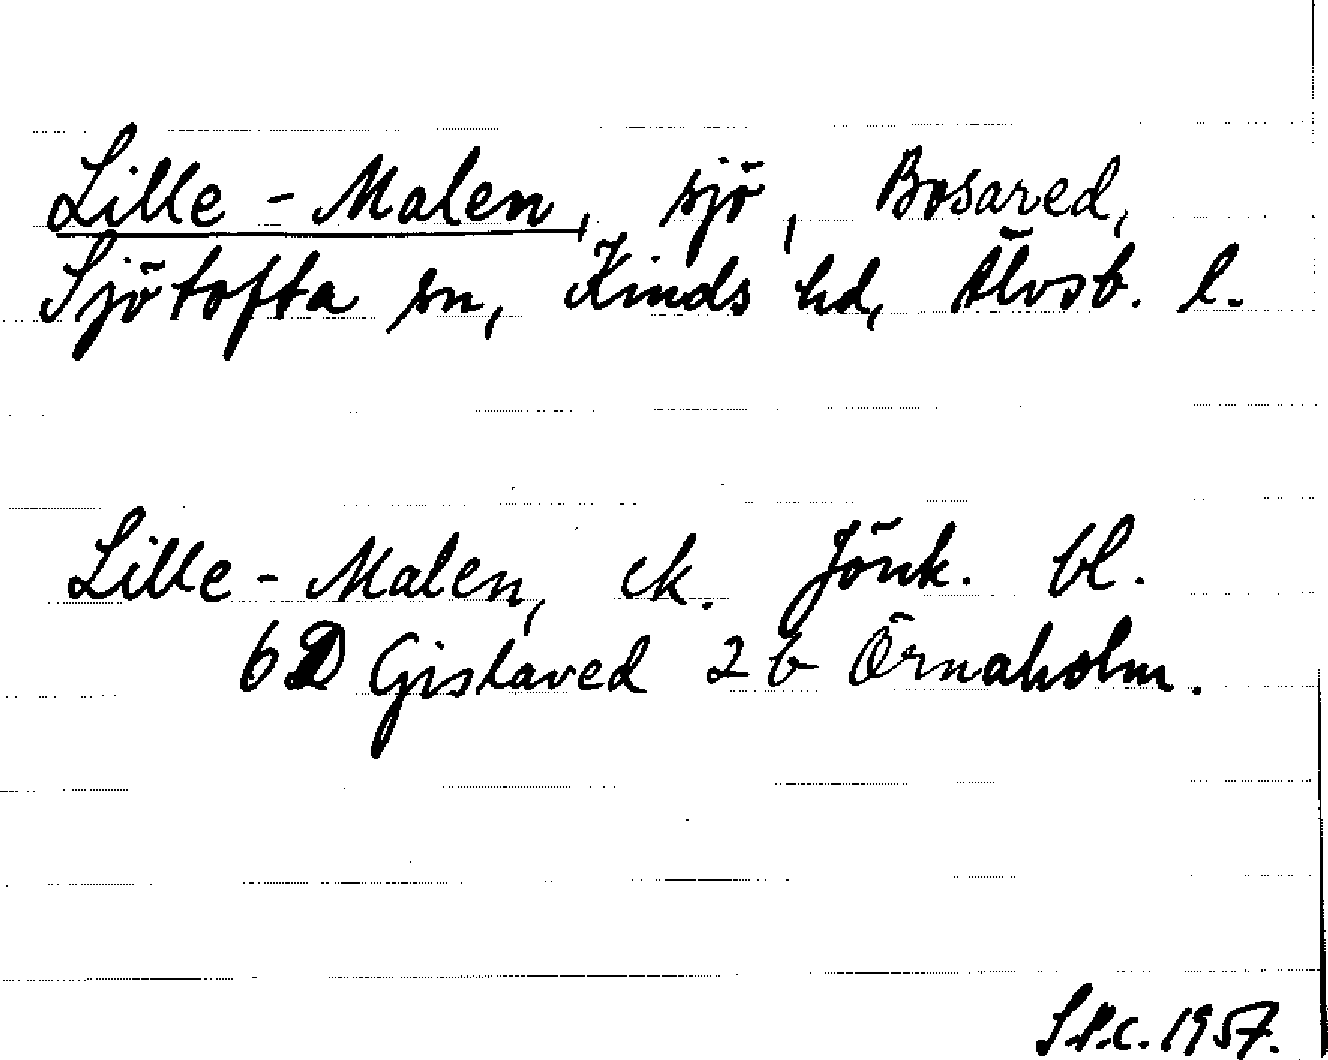 Lille-Malen, sjö, Bosared,
Sjötofta sn, Kinds hd, Älvsb. l.
Lille-Malen, ek. Jönk. bl.
6D Gislaved 2b Örnaholm.
S.P.C. 1957.